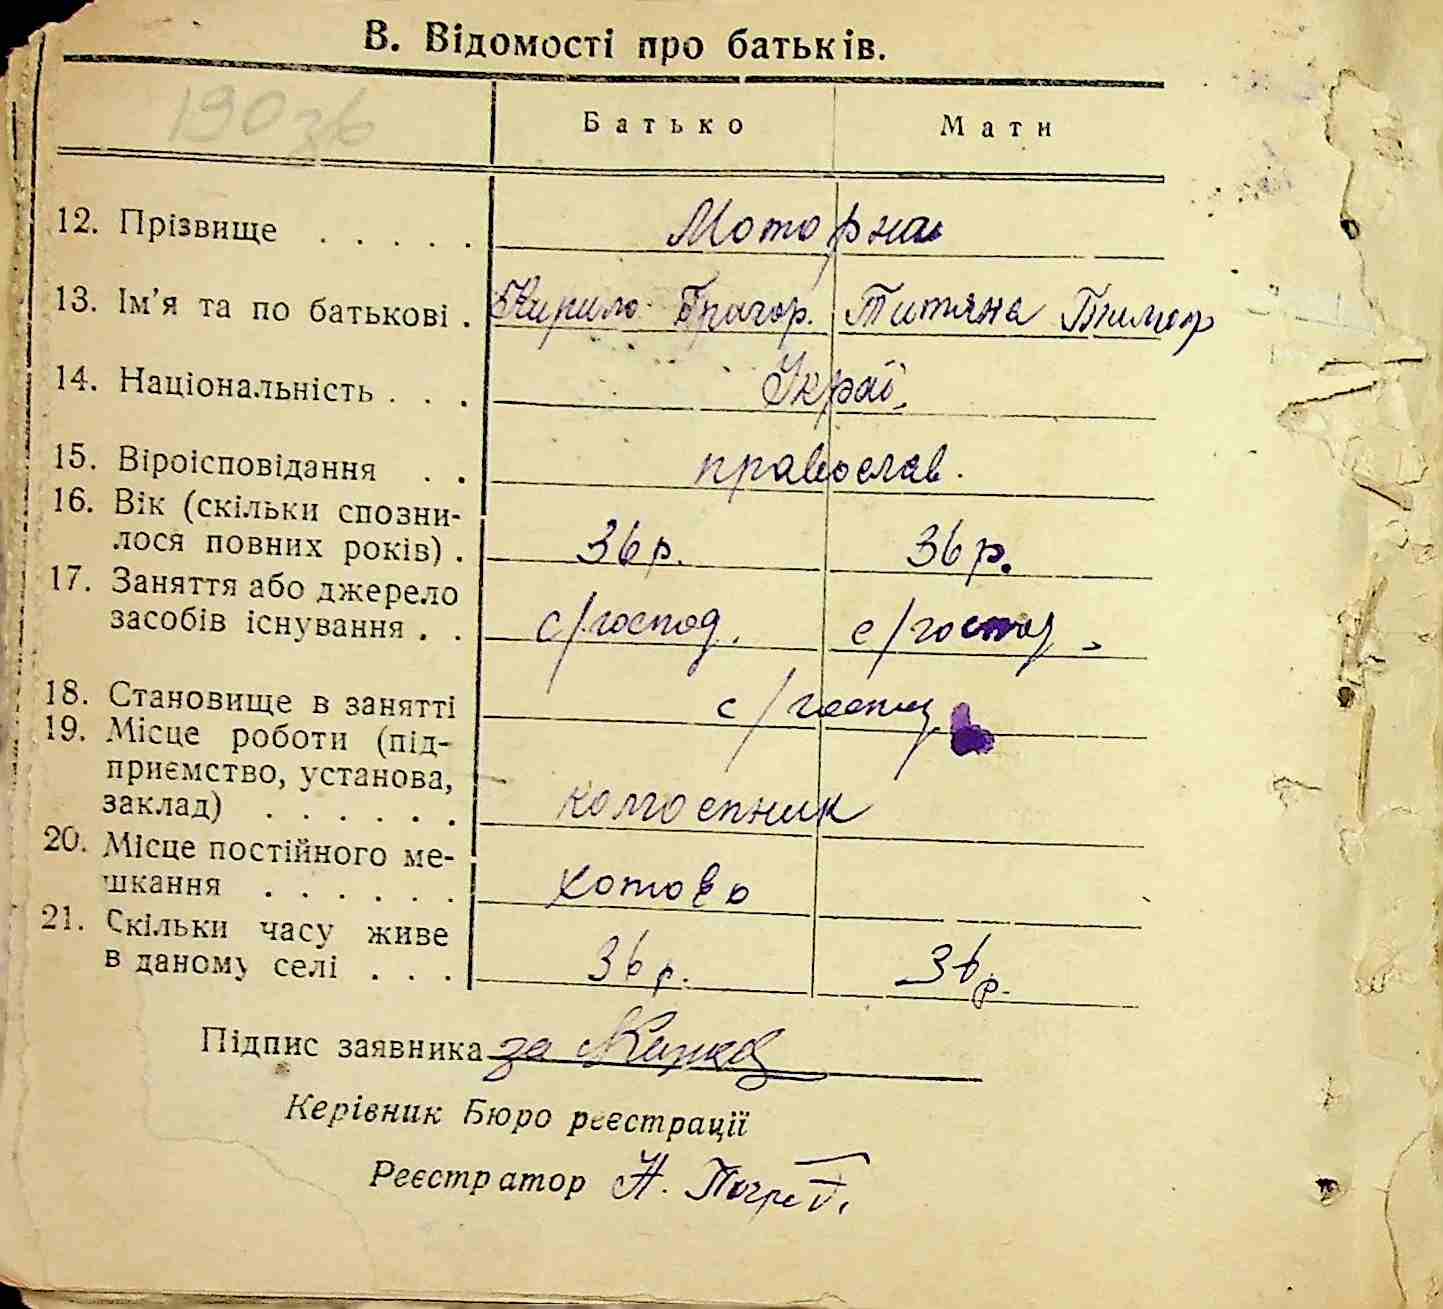 В. Відомості про батьків.
190зв
Батько Мати
12. Прізвище . . . . . Моторна
13. Ім'я та по батькові . Кирило Григор. Титяна Тимоф
14. Національність . . . Украї.
15. Віроісповідання . . православ.
16. Вік (скільки спозни-
лося повних років) . 36 р. 36 р.
17. Заняття або джерело
засобів існування . . с/господ. с/господ.
18. Становище в занятті с/господ
19. Місце роботи (під-
приємство, установа,
заклад) . . . . . . колгоспник
20. Місце постійного ме-
шкання . . . . . . Котово
21. Скільки часу живе
в даному селі . . . 36 р. 36 р.
Підпис заявника за
Керівник Бюро реєстрації
Реєстратор Н.